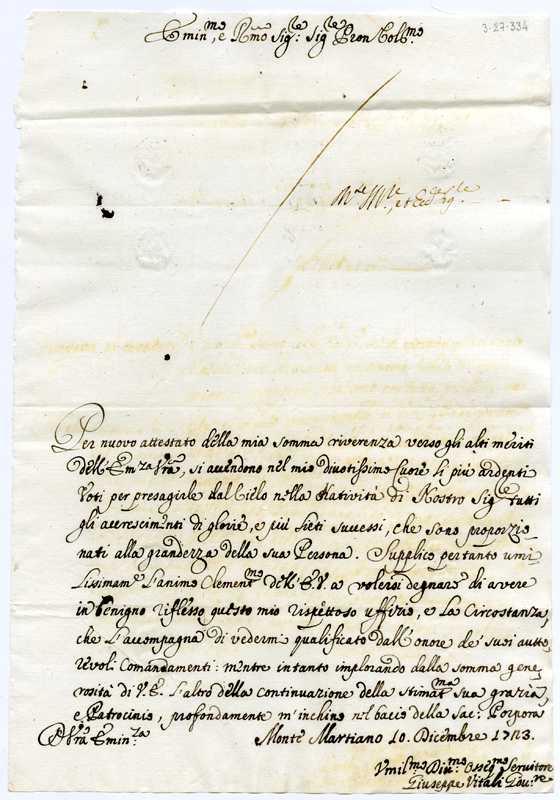 3-27-334
Emin.mo, e Rmo Sig.re Sig.re Pron Colmo
Per nuovo attestato della mia somma riverenza verso gli alti meriti
dell'Em.za Vra, si accendono nel mio divotissimo Cuore li più ardenti
Voti per presagirle dal Cielo nella Natività di Nostro Sig.re tutti
gli accrescimenti di glorie, e più lieti successi, che sono proporzio
nati alla grandezza della sua Persona. Supplico pertanto umi
lissimam.e l'animo Clement.mo dell'E.V. a volersi degnare di avere
in benigno riflesso questo mio rispettoso uffizio, e la Circostanza,
che l'accompagna di vedermi qualificato dall'onore de' suoi auto
revoli Comandamenti: mentre intanto implorando dalla somma gene
rosità di V.E. l'altro della continuazione della stimat.ma sua grazia,
e Patrocinio, profondamente m'inchino nel bacio della sac: Porpora
Vra Emin.za Monte Martiano 10. Dicembre 1743.
Vmil.mo Div.mo Osseq.mo Servitore
Giuseppe Vitali